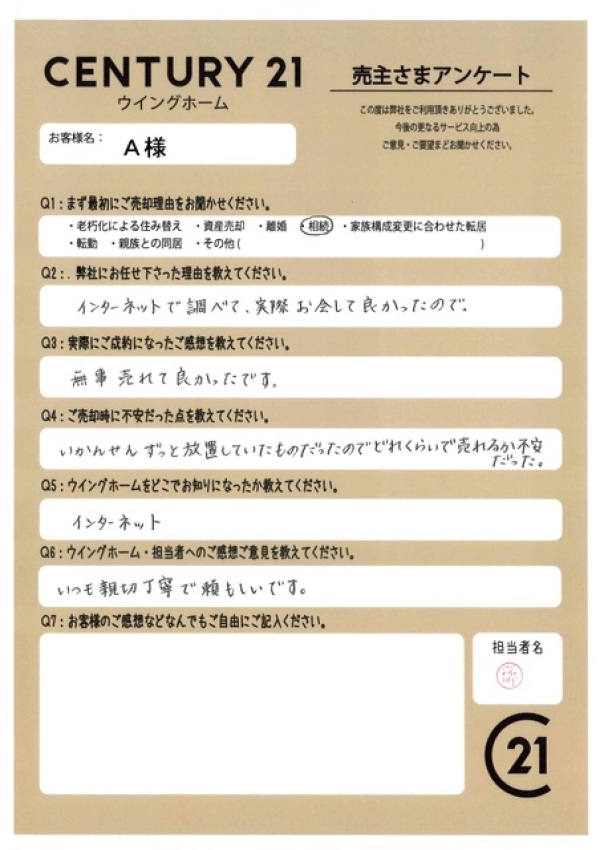 CENTURY 21
ウイングホーム
売主さまアンケート
この度は弊社をご利用頂きありがとうございました。
今後の更なるサービス向上の為
ご意見・ご要望まどお聞かせください。
お客様名：
A様
Q1：まず最初にご売却理由をお聞かせください。
・老朽化による住み替え ・資産売却 ・離婚 ・相続 ・家族構成変更に合わせた転居
・転勤 ・親族との同居 ・その他 ( )
Q2：. 弊社にお任せ下さった理由を教えてください。
インターネットで調べて、実際お会して良かったので。
Q3：実際にご成約になったご感想を教えてください。
無事売れて良かったです。
Q4：ご売却時に不安だった点を教えてください。
いかんせんずっと放置していたものだったのでどれくらいで売れるか不安
だった。
Q5：ウイングホームをどこでお知りになったか教えてください。
インターネット
Q6：ウイングホーム・担当者へのご感想ご意見を教えてください。
いつも親切丁寧で頼もしいです。
Q7：お客様のご感想などなんでもご自由にご記入ください。
担当者名
C21